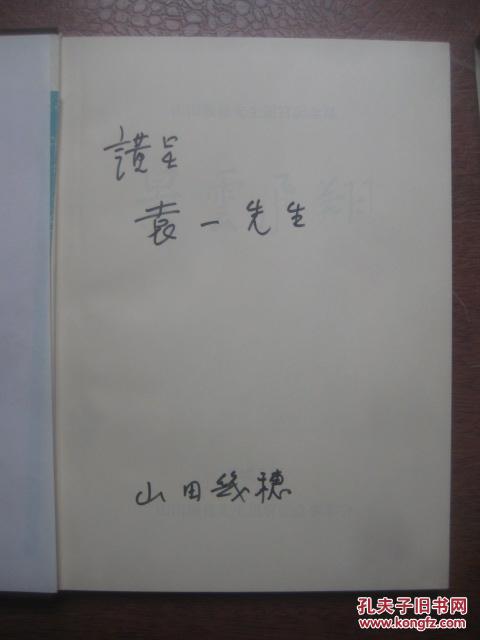 謹呈
袁一先生
山田幾穂
孔夫子旧书网
www.kongfz.com